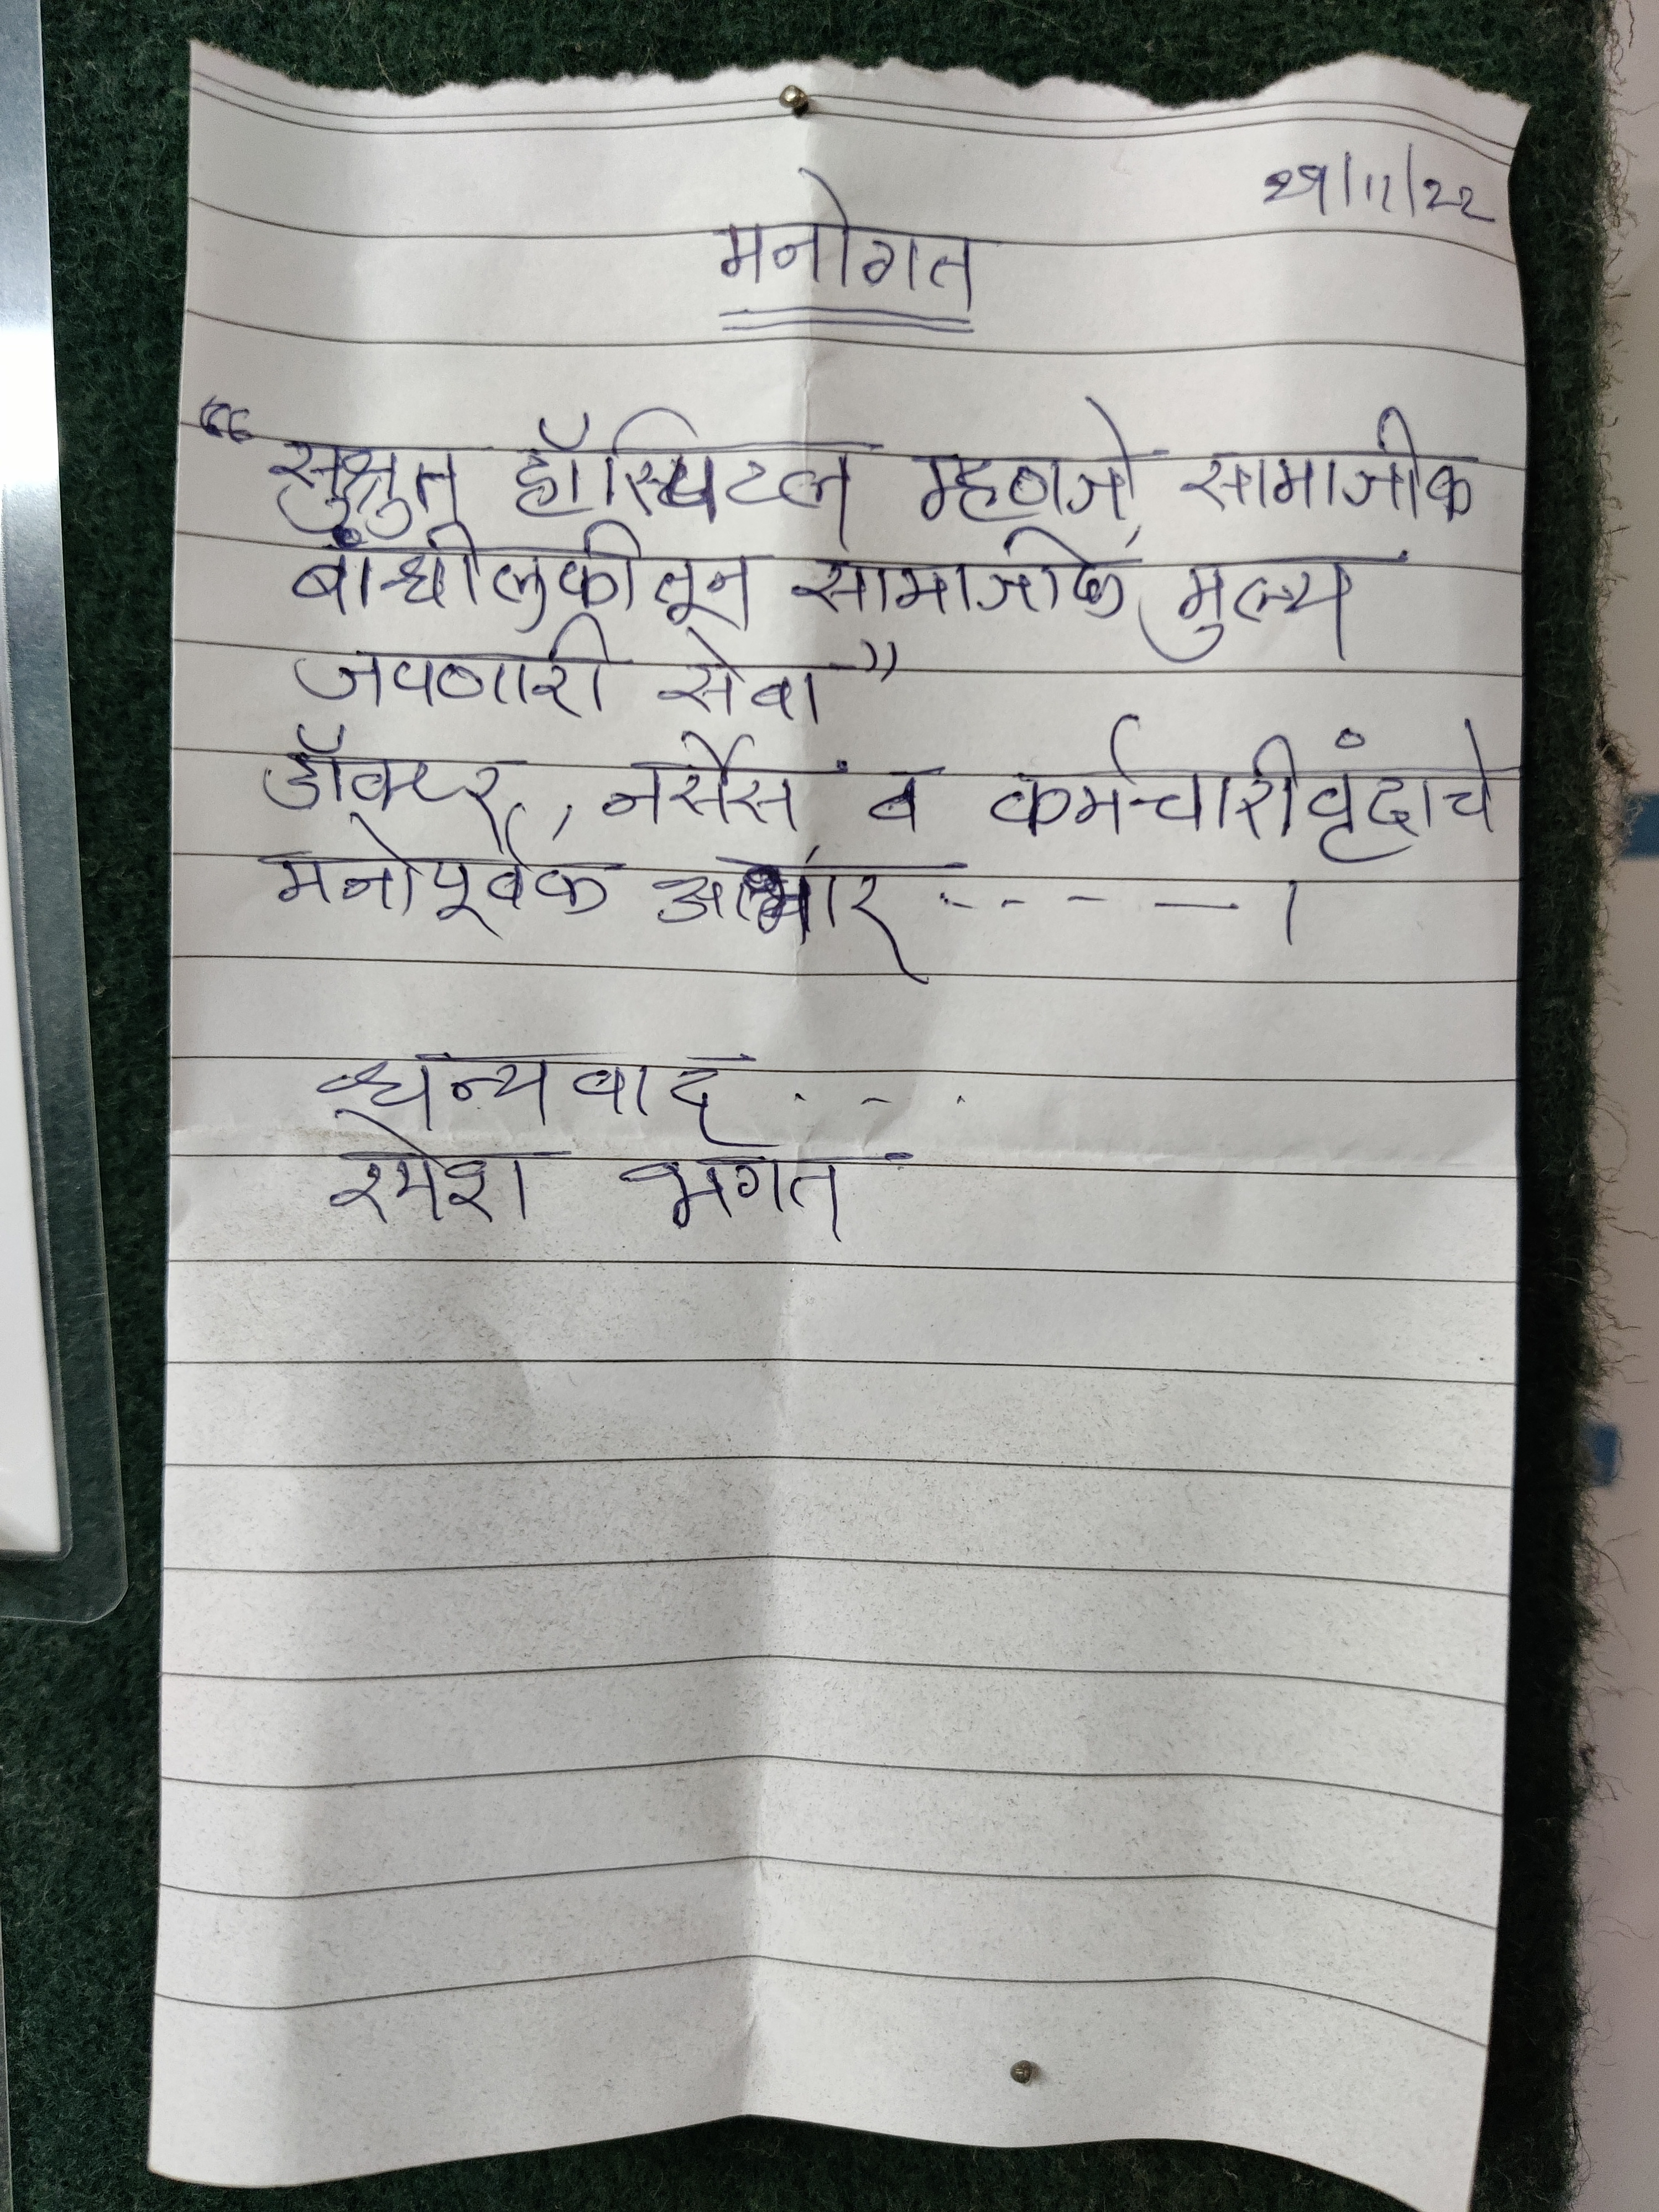 29/11/22
मनोगत
“सुश्रुत हॉस्पिटल म्हणजे सामाजीक
बांधीलकीतून सामाजीक मुल्य
जपणारी सेवा”
डॉक्टर, नर्सेस व कर्मचारीवृंदाचे
मनोपूर्वक आभार ---- — ।
धन्यवाद . - .
रमेश भगत